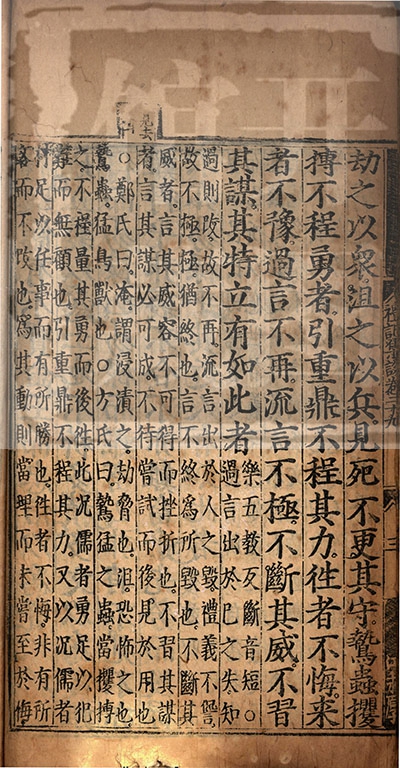 劫之以衆沮之以兵見死不更其守鷙蟲攫
搏不程勇者引重鼎不程其力徃者不悔来
者不豫過言不再流言不極不斷其威不習
其謀其特立有如此者樂五教反斷音短○過言出於己之失知
過則改故不再流言出於人之毀禮義不愆
故不極極猶終也言不終爲所毀也不斷其
威者言其威容不可得而挫折也不習其謀
者言其謀必可成不待嘗試而後見於用也
○鄭氏曰淹謂浸漬之劫脅也沮恐怖之也
鷙蟲猛鳥獸也○方氏曰鷙猛之蟲當攫搏
之不程量其勇而後徃此况儒者勇足以犯
難而無顧也引重鼎不程其力又以况儒者
材足以任事而有所勝也徃者不悔非有所
吝而不改也爲其動則當理而未嘗至於悔